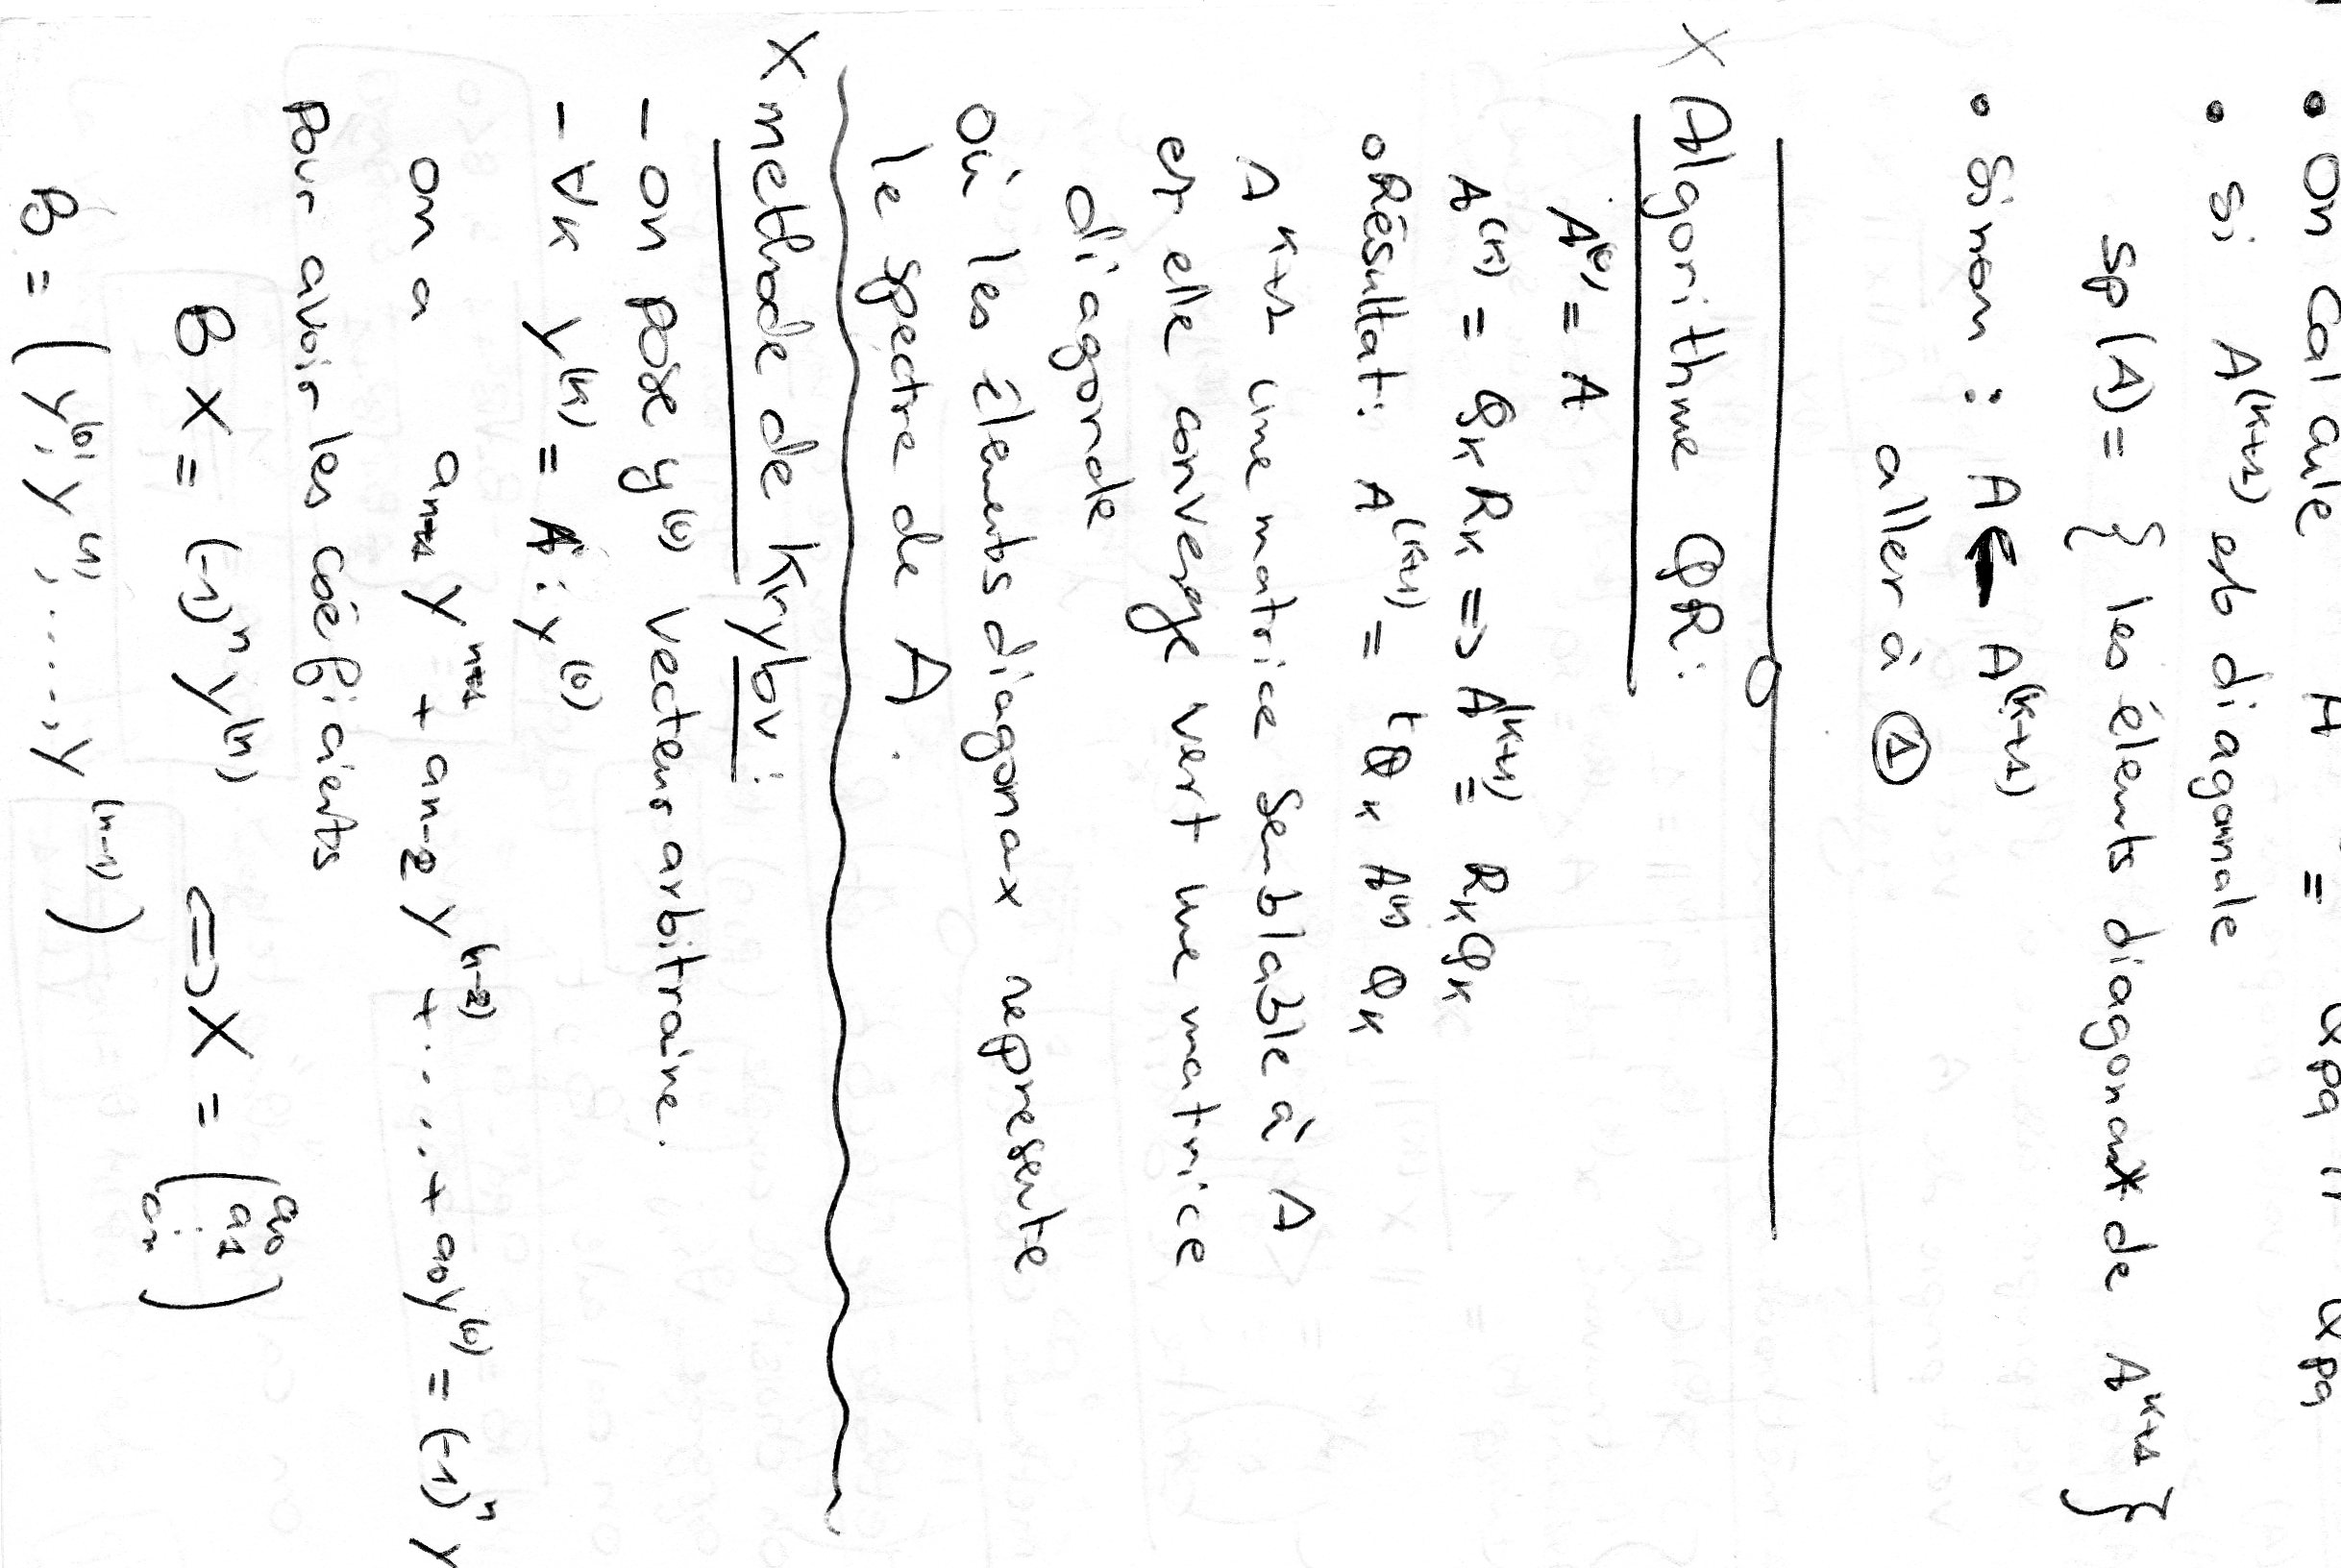 • On Calcule A = Qpq A Qpq
• Si A^(K+1) est diagonale
sp(A) = { les élements diagonaux de A^K+1 }
• Sinon : A ← A^(K+1)
aller à ①
X Algorithme QR :
A^(0) = A
A^(K) = Q_K R_K => A^(K+1) = R_K Q_K
• Résultat : A^(K+1) = ^tQ_K A^(K) Q_K
A^K+1 une matrice Semblable à A
et elle converge vert une matrice
diagonale
où les élements diagonax represente
le spectre de A.
X methode de Krylov :
- on pose y^(0) vecteur arbitraire.
- ∀K y^(K) = A . y^(0)
on a a_n-1 y^n-1 + a_n-2 y^(n-2) + ..... + a_0 y^(0) = (-1)^n y
Pour avoir les coéficients
B X = (-1)^n y^(n) <=> X = (a_0 a_1 ⋮ a_n)
B = ( y^(0), y^(1), ....., y^(n-1) )